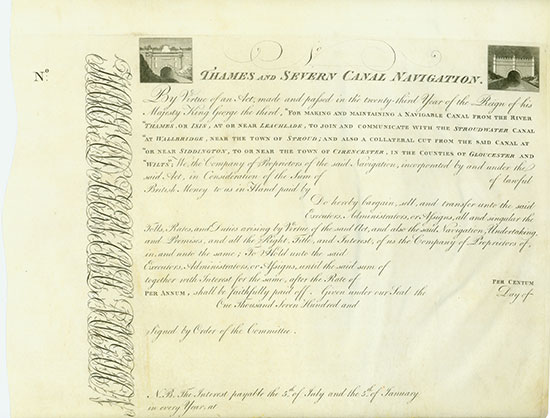 No
No
THAMES AND SEVERN CANAL NAVIGATION.
By Virtue of an Act, made and passed in the twenty-third Year of the Reign of his
Majesty King George the third, "FOR MAKING AND MAINTAINING A NAVIGABLE CANAL FROM THE RIVER
"THAMES, OR ISIS, AT OR NEAR LEACHLADE, TO JOIN AND COMMUNICATE WITH THE STROUDWATER CANAL
"AT WALLBRIDGE, NEAR THE TOWN OF STROUD; AND ALSO A COLLATERAL CUT FROM THE SAID CANAL AT
"OR NEAR SIDDINGTON, TO OR NEAR THE TOWN OF CIRENCESTER, IN THE COUNTIES OF GLOUCESTER AND
"WILTS", We, the Company of Proprietors of the said Navigation, incorporated by and under the
said Act, in Consideration of the Sum of of lawful
British Money to us in Hand paid by
Do hereby bargain, sell, and transfer unto the said
Executors, Administrators, or Assigns, all and singular the
Tolls, Rates, and Duties arising by Virtue of the said Act, and also the said Navigation, Undertaking,
and Premises, and all the Right, Title, and Interest, of us the Company of Proprietors of,
in, and unto the same; To Hold unto the said
Executors, Administrators, or Assigns, until the said sum of
together with Interest for the same, after the Rate of PER CENTUM
PER ANNUM, shall be faithfully paid off. Given under our Seal the Day of
One Thousand Seven Hundred and
Signed by Order of the Committee.
N.B. The Interest payable the 5th of July and the 5th of January
in every Year, at